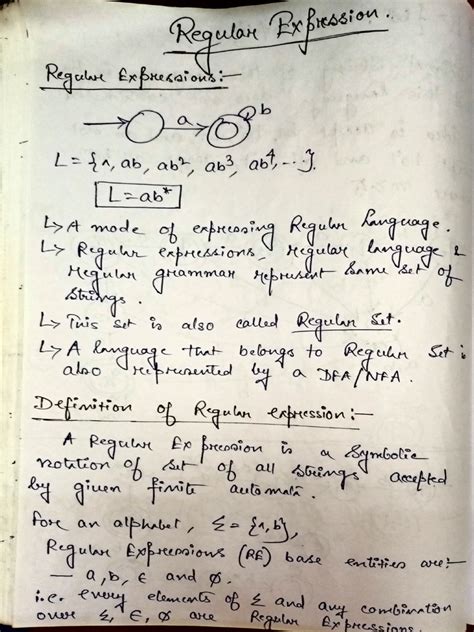 Regular Expression.
Regular Expressions:-
a b
L = {1, ab, ab², ab³, ab⁴, ...}.
L = ab*
↳ A mode of expressing Regular Language.
↳ Regular expressions, regular language &
regular grammar represent same set of
strings.
↳ This set is also called Regular Set.
↳ A language that belongs to Regular Set is
also represented by a DFA/NFA.
Definition of Regular expression:-
A Regular Expression is a Symbolic
notation of set of all strings accepted
by given finite automata.
For an alphabet, Σ = {1, b},
Regular Expressions (RE) base entities are:-
— a, b, ϵ and ∅.
i.e. every elements of Σ and any combination
over Σ, ϵ, ∅ are Regular Expressions.